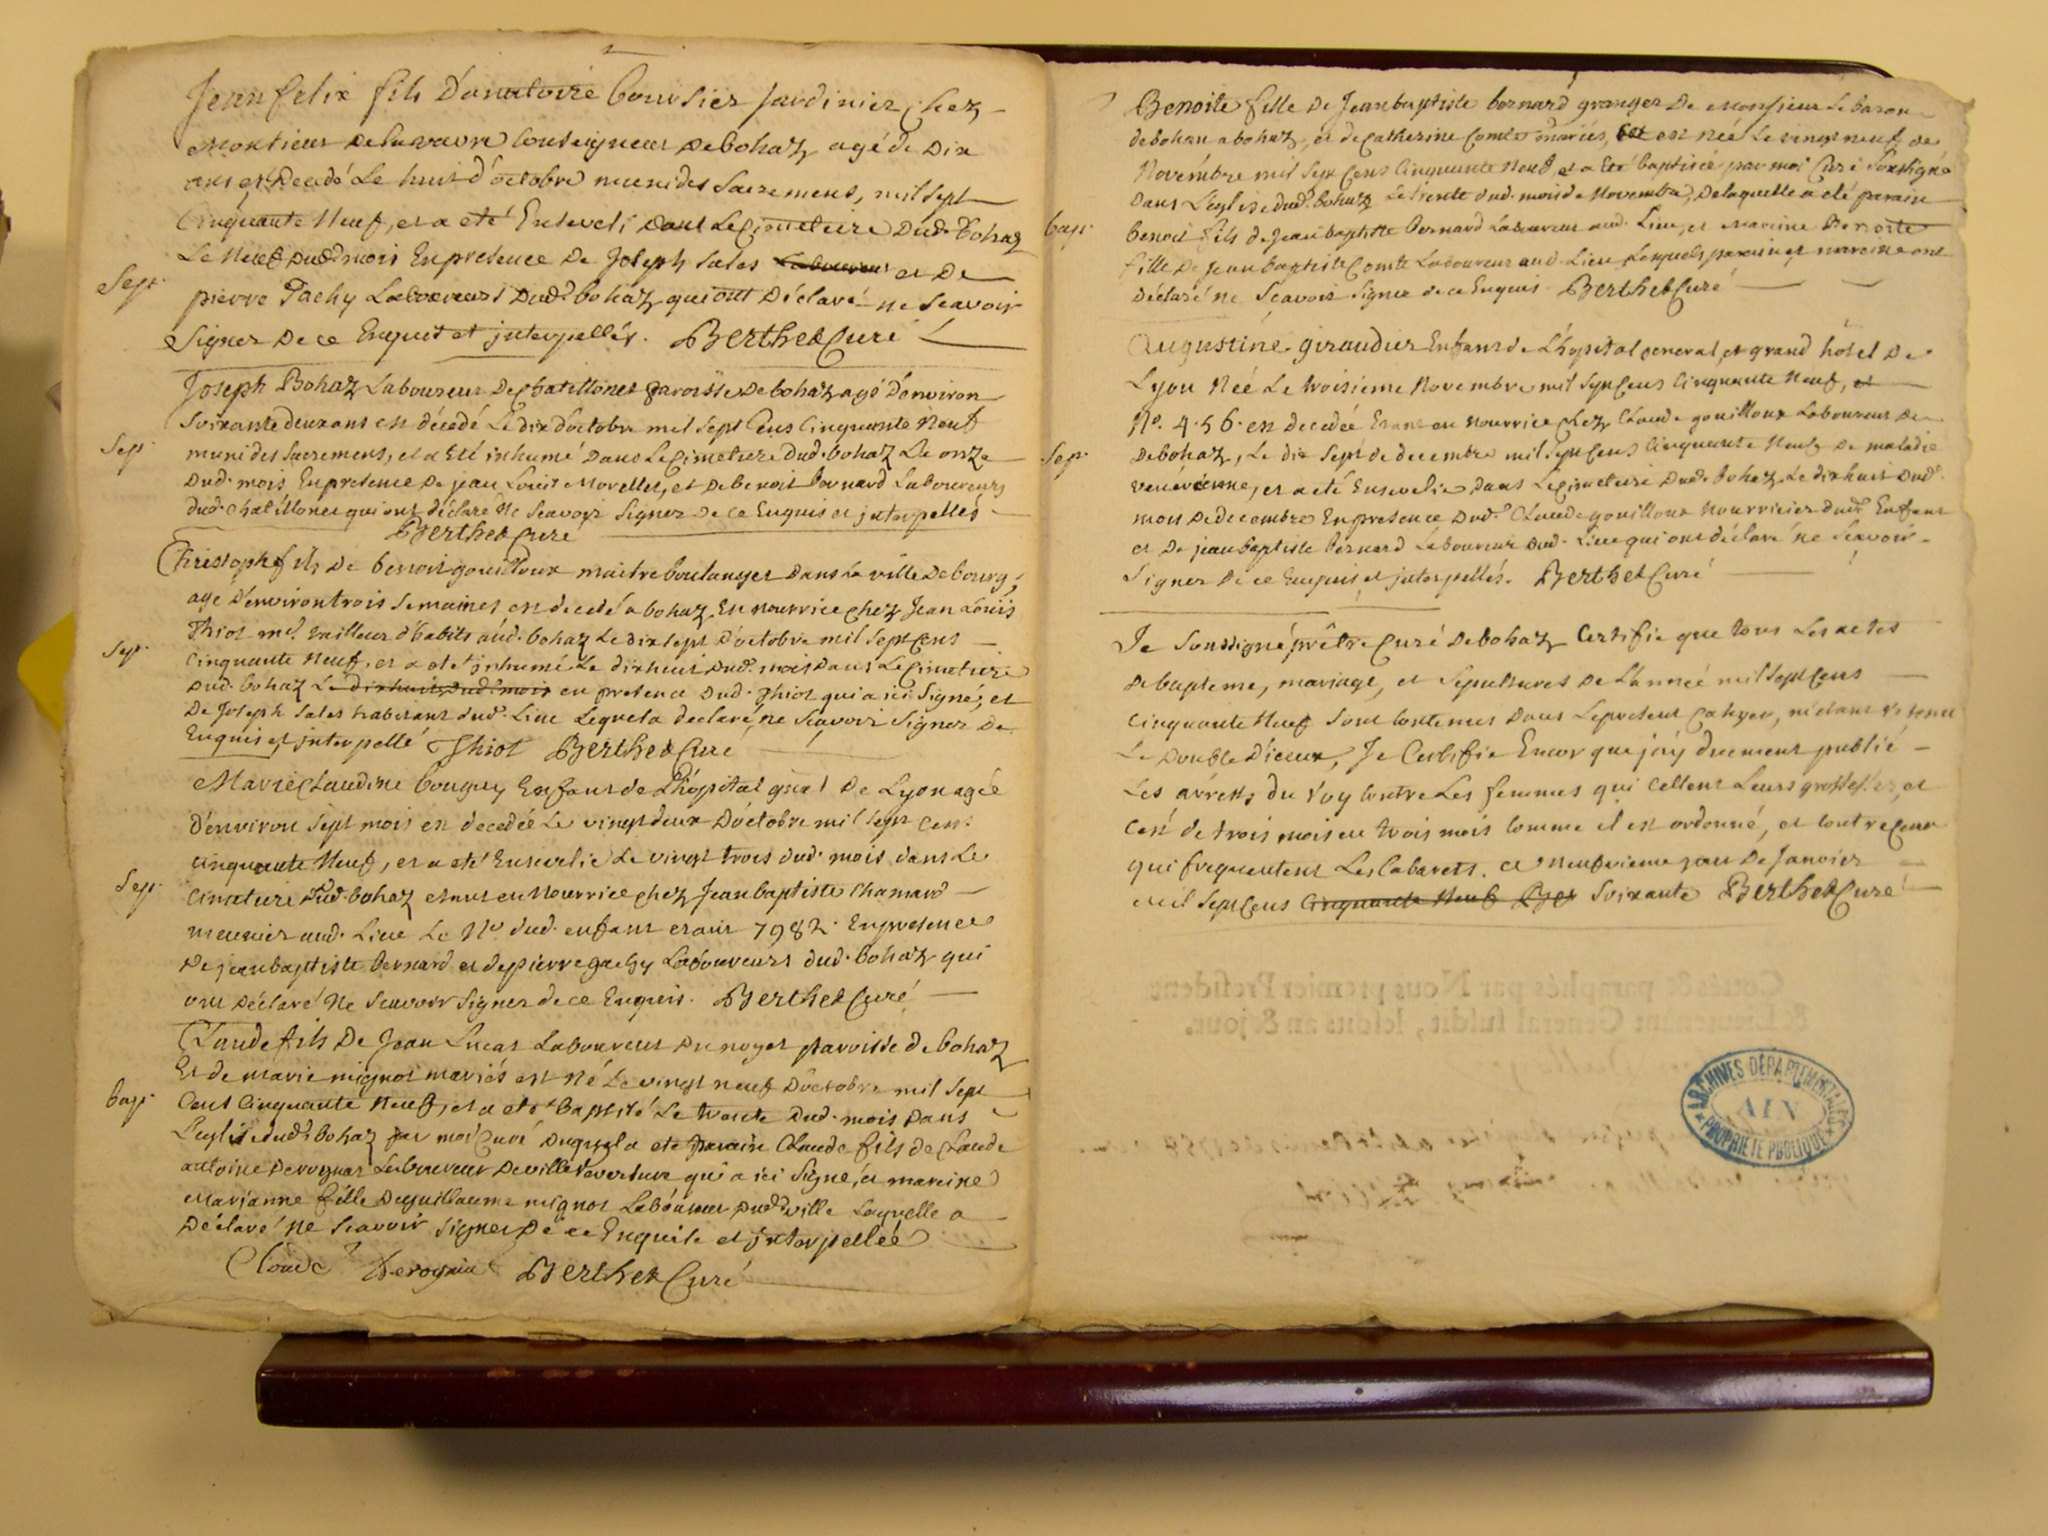 Jean felix fils D'anatoire boursier Jardinier chez
Monsieur Delavavre Conseigneur Debohaz agé de Dix
ans est Decedé Le huit d'octobre muni des Sacremens, mil sept
Cinquante Neuf, et a eté Enseveli Dans Le Cimetiere Dud. Bohaz
Le Neuf Dud. mois En presence De Joseph Sales Laboureur et De
Sept.
pierre Pachy Laboureurs Dud. bohaz qui ont Déclaré ne Scavoir
Signer De ce Enquis et interpellés. Berthet Curé
Joseph Bohaz Laboureur De Chatillonet paroisse De bohaz agé D'environ
Soixante deux ans est décédé Le dix D'octobre mil Sept Cens Cinquante Neuf
Sep.
muni des Sacremens, et a Eté inhumé Dans Le Cimetiere Dud. bohaz Le onze
Dud. mois En presence De jean Louis Morellet, et De benoit bernard Laboureurs
dud. Chatillonet qui ont déclaré Ne Scavoir Signer De ce Enquis et interpellés
Berthet Curé
Christophe fils De benoit gouilloux maitre boulanger Dans La ville De bourg,
age D'environ trois Semaines est decedé a bohaz En nourrice chez Jean Louis
Thiot me. tailleur d'habits aud. bohaz Le dix sept D'octobre mil Sept Cens
Sep.
Cinquante Neuf, et a eté inhumé Le dix huit Dud. mois Dans Le Cimetiere
Dud. bohaz Le dix huit Dud. mois en presence Dud. Thiot qui a ici Signé, et
De Joseph Sales habitant dud. Lieu Lequel a declaré ne Scavoir Signer De
Enquis et interpellé Thiot Berthet Curé
Marie Claudine bouguy Enfant de L'hôpital gnal De Lyon agée
D'environ Sept mois est decedée Le vingt deux D'octobre mil Sept Cens
Cinquante Neuf, et a eté Ensevelie Le vingt trois dud. mois dans Le
Sep.
Cimetiere Dud. bohaz etant en Nourrice chez Jean baptiste Chanard
meunier aud. Lieu Le No. dud. enfant etant 7982. En presence
De jean baptiste bernard et de pierre gachy Laboureurs dud. bohaz qui
ont Déclaré Ne Scavoir Signer de ce Enquis. Berthet Curé
Claude fils De Jean Lucas Laboureur Du noyer paroisse de bohaz
Et de Marie mignot mariés est Né Le vingt neuf D'octobre mil Sept
bap.
Cent Cinquante Neuf, et a eté Baptisé Le trente Dud. mois Dans
L'eglise dud. bohaz par moi Curé Duquel a eté parain Claude fils de Claude
antoine Derognat Laboureur De villereversure qui a ici Signé, et maraine
Marianne fille De guillaume mignot Laboureur Dud. ville Laquelle a
Déclaré Ne Scavoir Signer De ce Enquise et interpellée
Claude Derognat Berthet Curé
Benoite fille De Jean baptiste bernard granger De Monsieur Le baron
de bohan a bohaz, et de Catherine Comte mariés, est est née Le vingt neuf de
Novembre mil Sept Cens Cinquante Neuf et a Eté baptisée par moi Curé Soussigné
Dans L'eglise dud. bohaz Le trente dud. mois de Novembre, De laquelle a eté parain
bap.
benoit fils de Jean baptiste bernard Laboureur aud. Lieu, et Maraine Benoite
fille De Jean baptiste Comte Laboureur aud. Lieu Lesquels parain et maraine ont
Déclaré ne Scavoir Signer de ce Enquis. Berthet Curé
Augustine giraudier Enfant de L'hopital general, et grand hôtel De
Lyon Née Le troisieme Novembre mil Sept Cens Cinquante Neuf, et
No. 456. est decedée Etant en nourrice chez Claude gouilloux Laboureur De
Sep.
De bohaz, Le dix Sept de decembre mil Sept Cens Cinquante Neuf De maladie
venérienne, et a eté Ensevelie Dans Le Cimetiere Dud. bohaz Le dix huit Dud.
mois De decembre En presence Dud. Claude gouilloux Nourricier dud. Enfant
et De jean baptiste bernard Laboureur Dud. Lieu qui ont déclaré ne Scavoir
Signer De ce Enquis et interpellés. Berthet Curé
Je Soussigné prêtre Curé De bohaz Certifie que tous Les actes
De bapteme, mariage, et Sepultures De L'année mil Sept Cens
Cinquante Neuf Sont Contenus Dans Le present Cahyer, m'etant retenu
Le Double D'iceux, Je Certifie Encor que j'ay duement publié
Les arrests du roy Contre Les femmes qui Cellent Leurs grossesses, et
Ceci de trois mois en trois mois Comme il est ordonné, et Contre Ceux
qui frequentent Les Cabarets. ce Neufvieme jour De Janvier
mil Sept Cens Cinquante Neuf Soixante Berthet Curé
Cottés & paraphés par Nous premier President
& Lieutenant General susdit, lesdits an & jour.
ARCHIVES DÉPARTEMENTALES
AIN
PROPRIÉTÉ PUBLIQUE